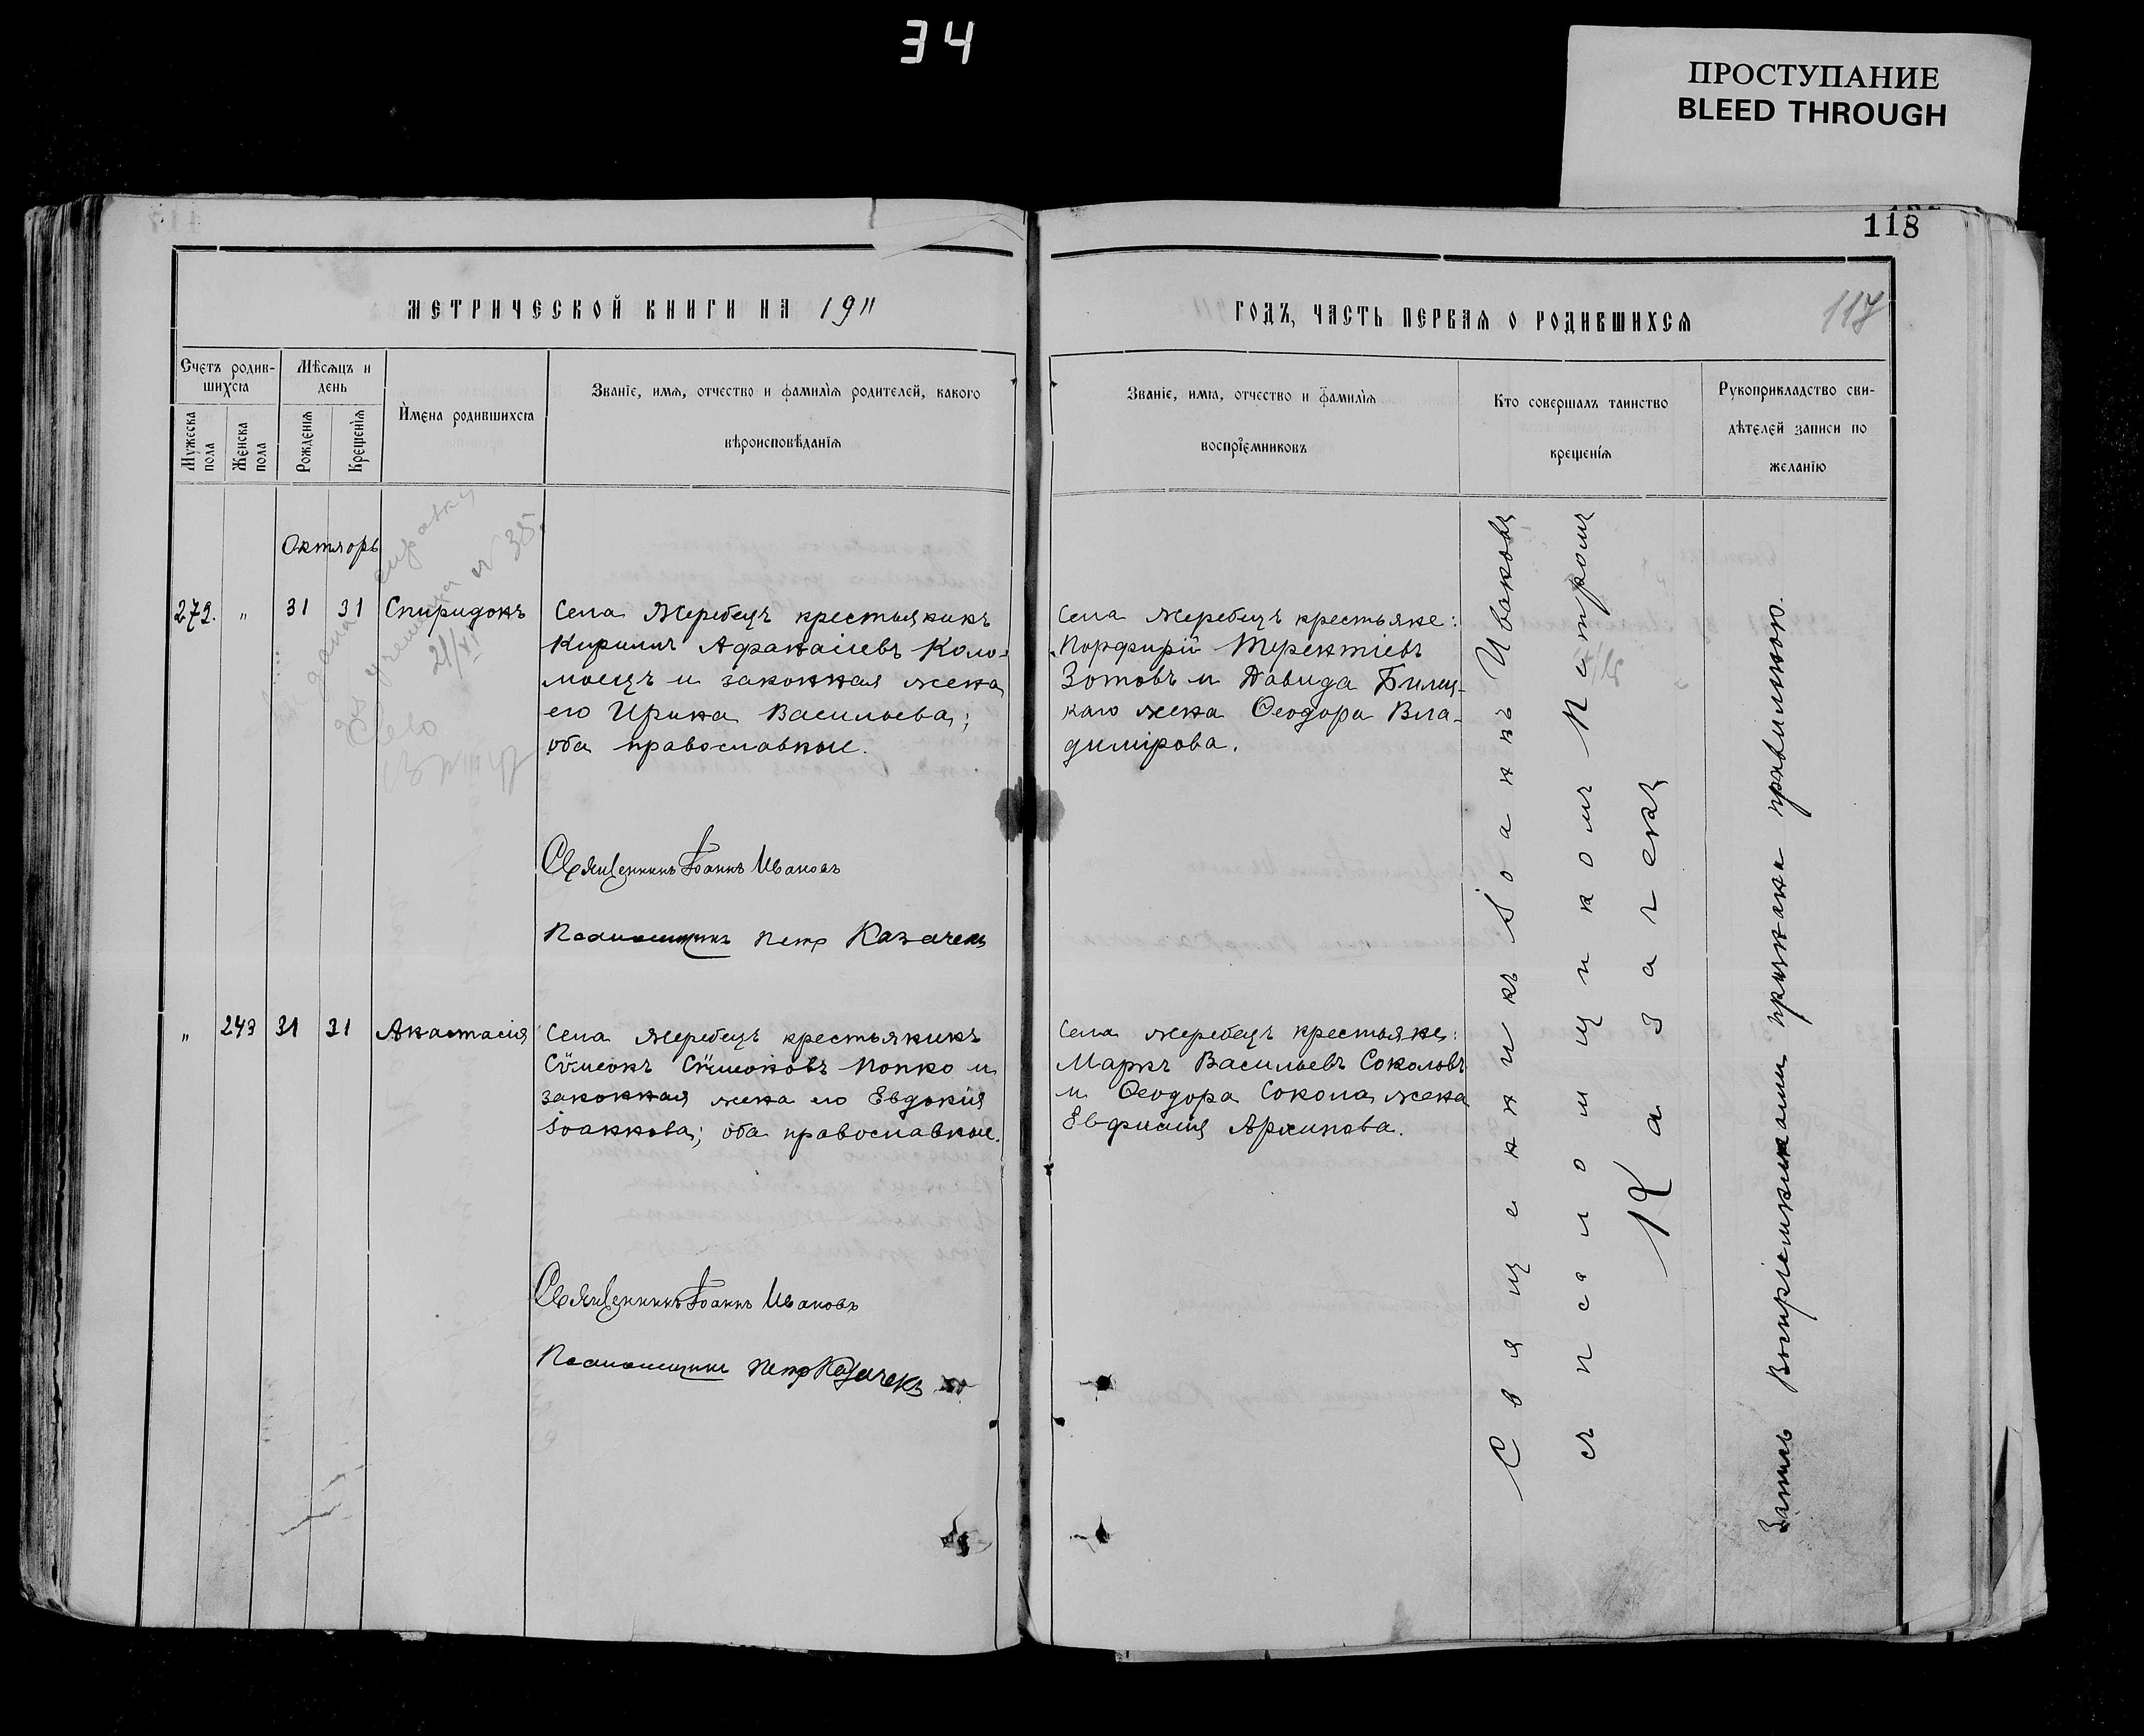 34
ПРОСТУПАНИЕ
BLEED THROUGH
118
117
МЕТРИЧЕСКОЙ КНИГИ НА 1911
ГОДЪ, ЧАСТЬ ПЕРВАЯ О РОДИВШИХСЯ
Счетъ родив-
шихся
Мужеска
пола
Женска
пола
Мѣсяцъ и
день
Рожденія
Крещенія
Имена родившихся
Званіе, имя, отчество и фамилія родителей, какого
вѣроисповѣданія
Званіе, имя, отчество и фамилія
воспріемниковъ
Кто совершалъ таинство
крещенія
Рукоприкладство сви-
дѣтелей записи по
желанію
Октябрь
272. „ 31 31 Спиридонъ
Села Жеребецъ крестьянинъ
Кириллъ Афанасіевъ Коло-
моецъ и законная жена
его Ирина Васильева;
оба православные.
Села Жеребецъ крестьяне:
Порфирій Терентіевъ
Зотовъ и Давида Билец-
каго жена Ѳеодора Вла-
димірова.
справку
№ 38
21/XI
Село
Священникъ Іоаннъ Ивановъ
Псаломщикъ Петр Казачекъ
„ 243 31 31 Анастасія
Села Жеребецъ крестьянинъ
Сѵмеонъ Сѵмеоновъ Попко и
законная жена его Евдокія
Іоаннова; оба православные.
Села Жеребецъ крестьяне:
Маркъ Васильевъ Соколовъ
и Ѳеодора Сокола жена
Евфимія Архипова.
Священникъ Іоаннъ Ивановъ
Псаломщикъ Петр Казачекъ
Священникъ Іоаннъ Ивановъ
съ псаломщикомъ Петромъ
Казачекъ
Запись Воспріемниками признана правильною.